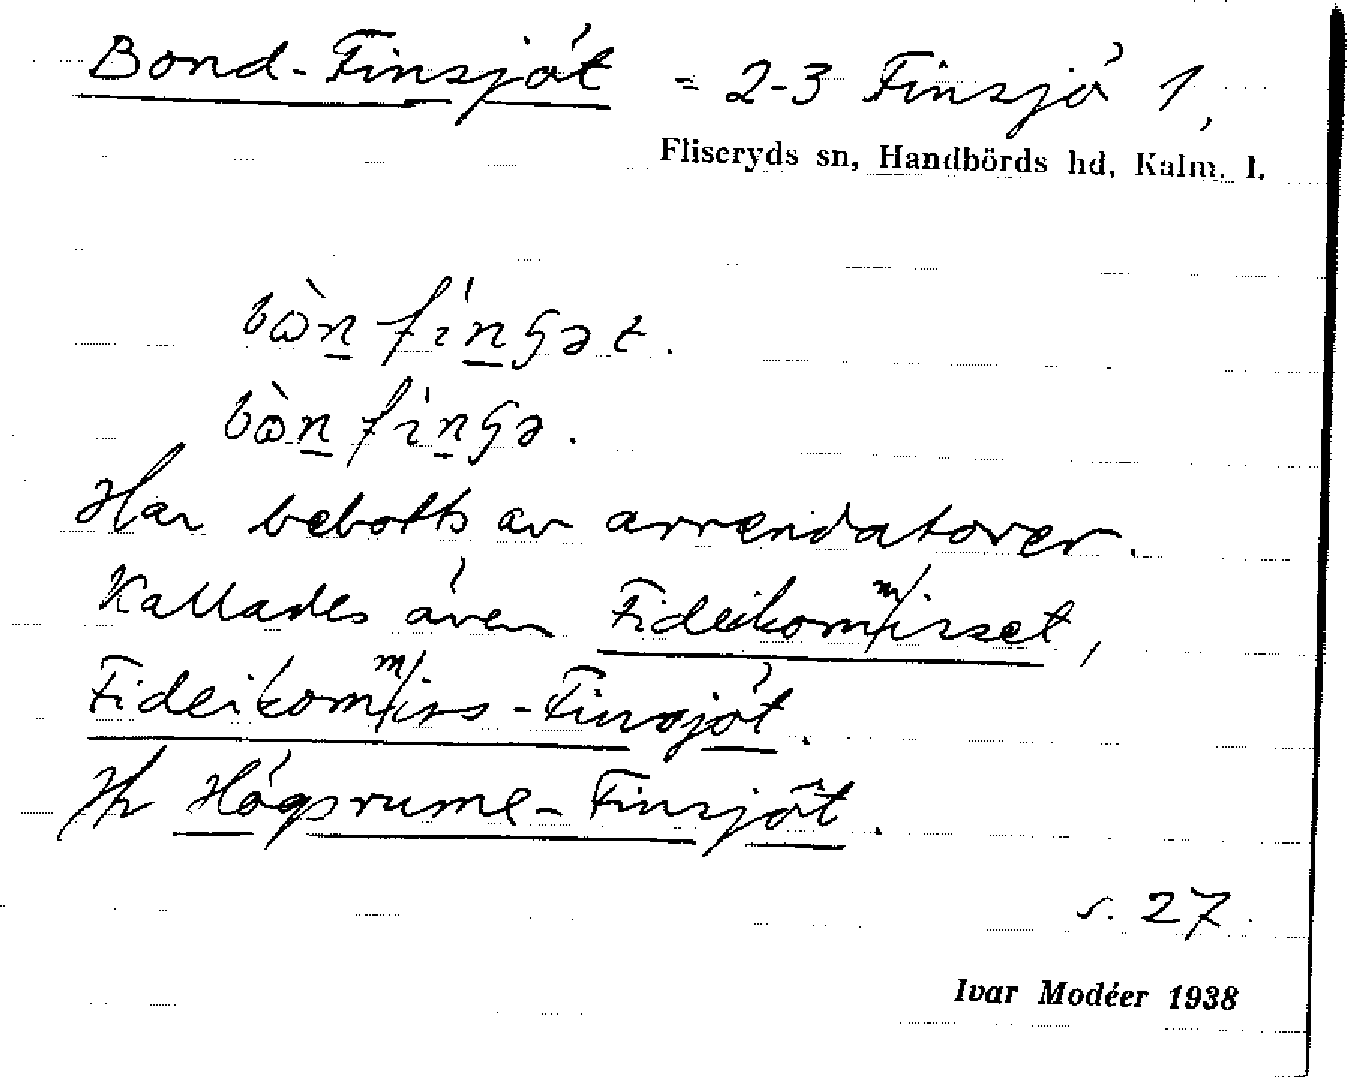 Bond-Finsjöt = 2-3 Finsjö 1,
Fliseryds sn, Handbörds hd, Kalm. l.
Har bebotts av arrendatorer.
Kallades även Fideikommisset,
Fideikommiss-Finsjöt.
Jfr Högsrume-Finsjöt.
s. 27.
Ivar Modéer 1938